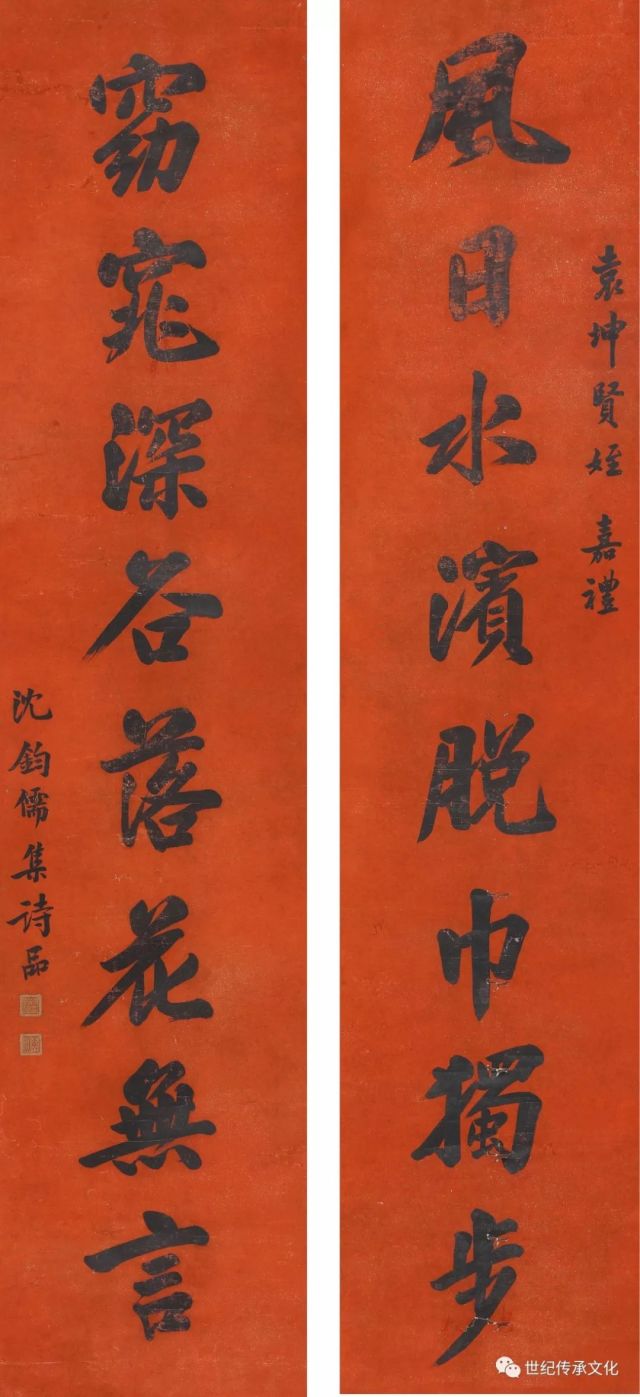 袁坤賢姪 嘉禮
風日水濱脱巾獨步
窈窕深谷落花無言
沈鈞儒集诗品
世纪传承文化